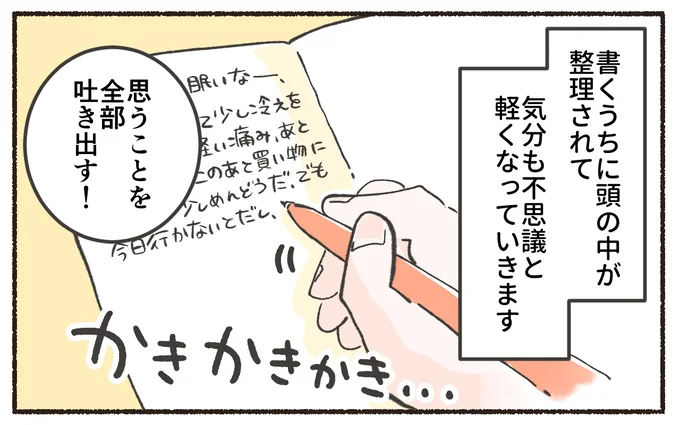 書くうちに頭の中が
整理されて
気分も不思議と
軽くなっていきます
思うことを
全部
吐き出す!
眠いなー、
で少し冷えを
軽い痛み、あと
このあと買い物に
少しめんどうだ、でも
今日行かないとだし、
かきかきかき…